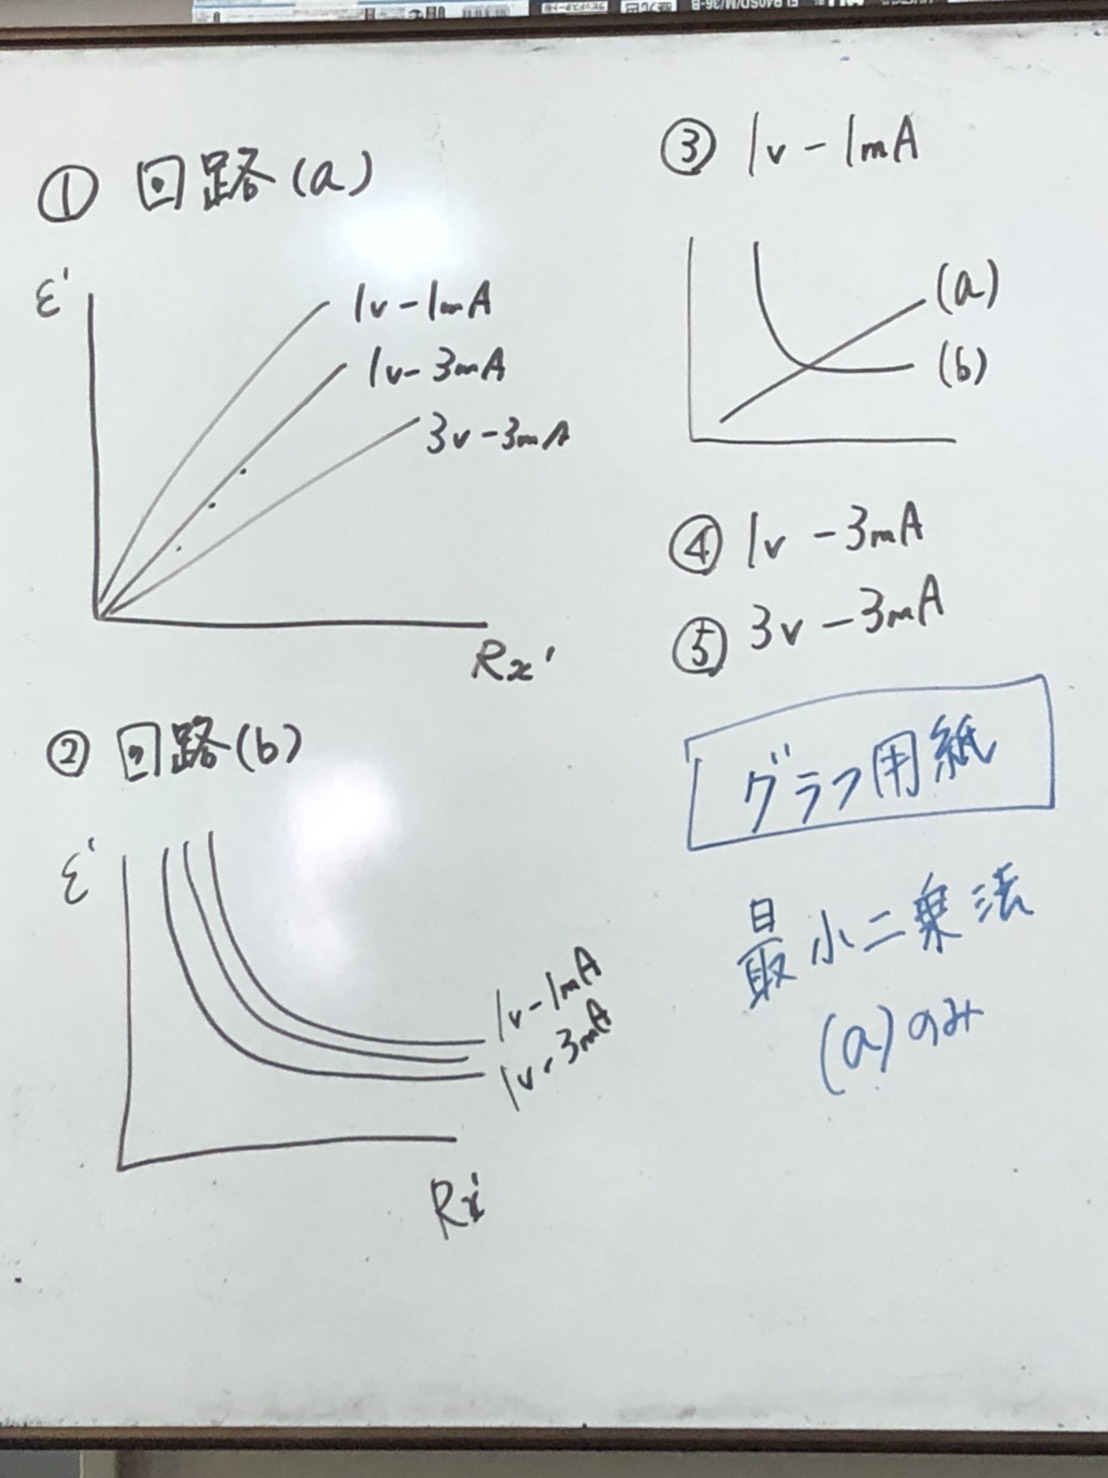 ① 回路(a)
ε'
1v-1mA
1v-3mA
3v-3mA
Rx'
② 回路(b)
ε'
1v-1mA
1v-3mA
Rx'
③ 1v-1mA
(a)
(b)
④ 1v-3mA
⑤ 3v-3mA
グラフ用紙
最小二乗法
(a)のみ